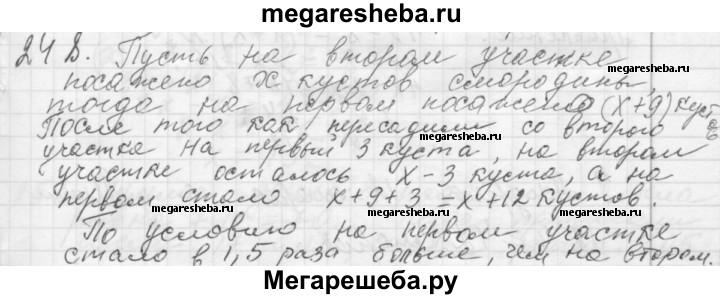 megaresheba.ru
248. Пусть на втором участке
посажено x кустов смородины,
megaresheba.ru
megaresheba.ru
тогда на первом посажено (x+9) кустов
После того как пересадили со второго
участка на первый 3 куста, на втором
участке осталось x-3 куста, а на
megaresheba.ru
megaresheba.ru
первом стало x+9+3=x+12 кустов.
megaresheba.ru
megaresheba.ru
По условию на первом участке
стало в 1,5 раза больше, чем на втором.
Мегарешеба.ру